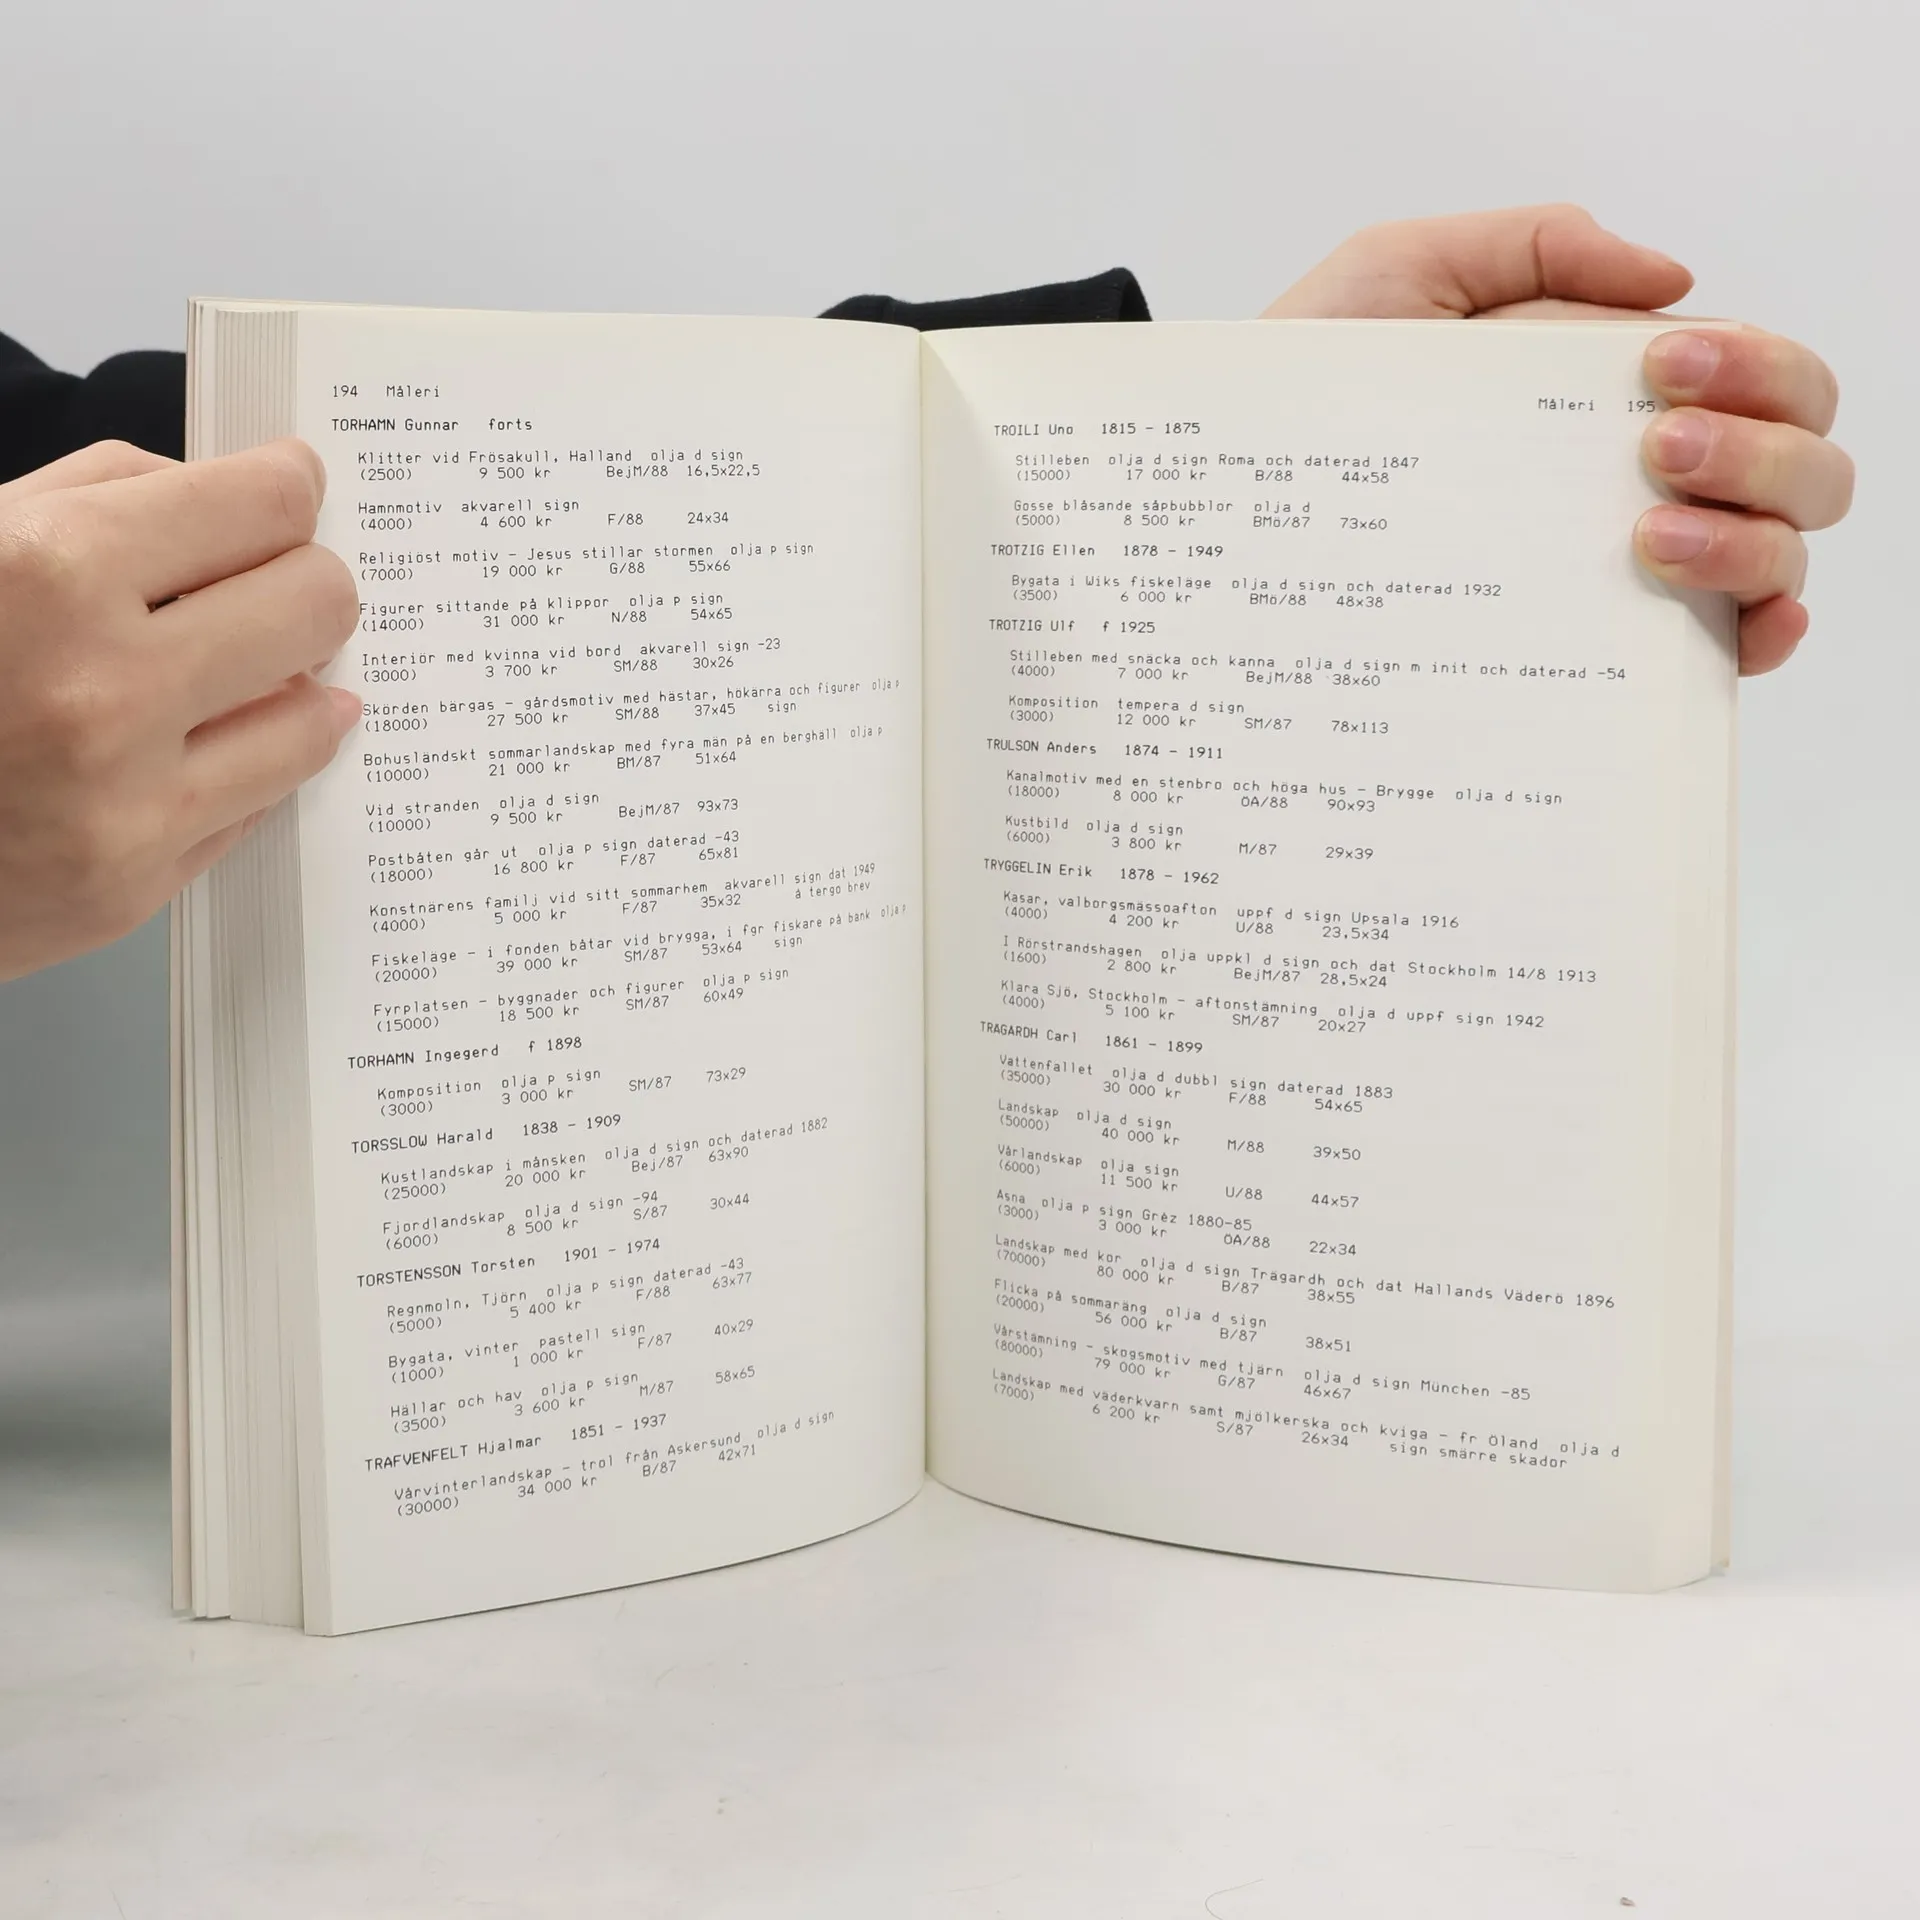 194 Måleri
TORHAMN Gunnar forts
Klitter vid Frösakull, Halland olja d sign
(2500) 9 500 kr BejM/88 16,5x22,5
Hamnmotiv akvarell sign
(4000) 4 600 kr F/88 24x34
Religiöst motiv - Jesus stillar stormen olja p sign
(7000) 19 000 kr G/88 55x66
Figurer sittande på klippor olja p sign
(14000) 31 000 kr N/88 54x65
Interiör med kvinna vid bord akvarell sign -23
(3000) 3 700 kr SM/88 30x26
Skörden bärgas - gårdsmotiv med hästar, hökärra och figurer olja p
(18000) 27 500 kr SM/88 37x45 sign
Bohusländskt sommarlandskap med fyra män på en berghäll olja p
(10000) 21 000 kr BM/87 51x64
Vid stranden olja d sign
(10000) 9 500 kr BejM/87 93x73
Postbåten går ut olja p sign daterad -43
(18000) 16 800 kr F/87 65x81
Konstnärens familj vid sitt sommarhem akvarell sign dat 1949
(4000) 5 000 kr F/87 35x32 å tergo brev
Fiskeläge - i fonden båtar vid brygga, i fgr fiskare på bänk olja p
(20000) 39 000 kr SM/87 53x64 sign
Fyrplatsen - byggnader och figurer olja p sign
(15000) 18 500 kr SM/87 60x49
TORHAMN Ingegerd f 1898
Komposition olja p sign
(3000) 3 000 kr SM/87 73x29
TORSSLOW Harald 1838 - 1909
Kustlandskap i månsken olja d sign och daterad 1882
(25000) 20 000 kr Bej/87 63x90
Fjordlandskap olja d sign -94
(6000) 8 500 kr S/87 30x44
TORSTENSSON Torsten 1901 - 1974
Regnmoln, Tjörn olja p sign daterad -43
(5000) 5 400 kr F/88 63x77
Bygata, vinter pastell sign
(1000) 1 000 kr F/87 40x29
Hällar och hav olja p sign
(3500) 3 600 kr M/87 58x65
TRAFVENFELT Hjalmar 1851 - 1937
Vårvinterlandskap - trol från Askersund olja d sign
(30000) 34 000 kr B/87 42x71
Måleri 195
TROILI Uno 1815 - 1875
Stilleben olja d sign Roma och daterad 1847
(15000) 17 000 kr B/88 44x58
Gosse blåsande såpbubblor olja d
(5000) 8 500 kr BMö/87 73x60
TROTZIG Ellen 1878 - 1949
Bygata i Wiks fiskeläge olja d sign och daterad 1932
(3500) 6 000 kr BMö/88 48x38
TROTZIG Ulf f 1925
Stilleben med snäcka och kanna olja d sign m init och daterad -54
(4000) 7 000 kr BejM/88 38x60
Komposition tempera d sign
(3000) 12 000 kr SM/87 78x113
TRULSON Anders 1874 - 1911
Kanalmotiv med en stenbro och höga hus - Brygge olja d sign
(18000) 8 000 kr ÖA/88 90x93
Kustbild olja d sign
(6000) 3 800 kr M/87 29x39
TRYGGELIN Erik 1878 - 1962
Kasar, valborgsmässoafton uppf d sign Upsala 1916
(4000) 4 200 kr U/88 23,5x34
I Rörstrandshagen olja uppkl d sign och dat Stockholm 14/8 1913
(1600) 2 800 kr BejM/87 28,5x24
Klara Sjö, Stockholm - aftonstämning olja d uppf sign 1942
(4000) 5 100 kr SM/87 20x27
TRÄGARDH Carl 1861 - 1899
Vattenfallet olja d dubbl sign daterad 1883
(35000) 30 000 kr F/88 54x65
Landskap olja d sign
(50000) 40 000 kr M/88 39x50
Vårlandskap olja sign
(6000) 11 500 kr U/88 44x57
Åsna olja p sign Gréz 1880-85
(3000) 3 000 kr ÖA/88 22x34
Landskap med kor olja d sign Trägardh och dat Hallands Väderö 1896
(70000) 80 000 kr B/87 38x55
Flicka på sommaräng olja d sign
(20000) 56 000 kr B/87 38x51
Vårstämning - skogsmotiv med tjärn olja d sign München -85
(80000) 79 000 kr G/87 46x67
Landskap med väderkvarn samt mjölkerska och kviga - fr Öland olja d
(7000) 6 200 kr S/87 26x34 sign smärre skador